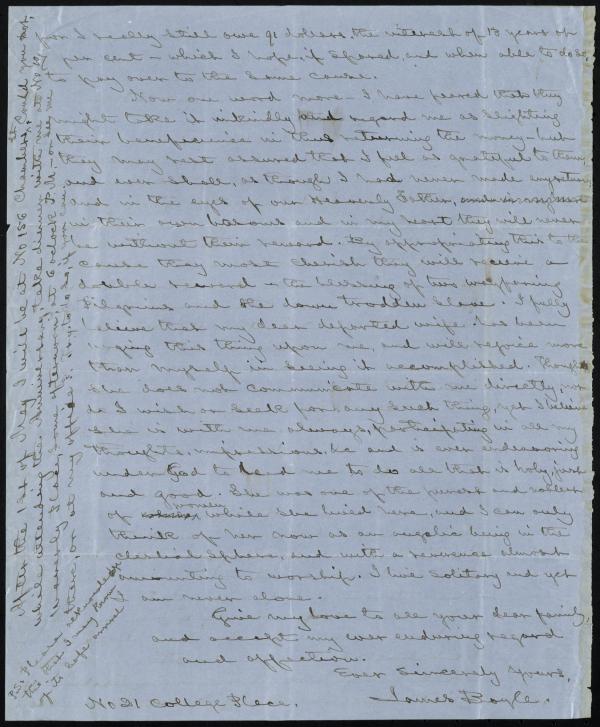 for I really still owe 91 dollars, the interest of 13 years at
7 per cent – which I hope, if spared, and when able to do so,
to pay over to the same cause.
Now one word more – I have feared that they
might take it unkindly and regard me as slighting
their beneficience in thus returning the money – but
they may rest assured that I feel as grateful to them,
and ever shall, as though I had never made any return,
and in the eyes of our Heavenly Father,
in their own bosoms and in my heart they will never
be without their reward. By appropriating this to the
cause they most cherish they will receive a
double reward – the blessing of two wayfaring
Pilgrims and the down trodden Slave. I fully
believe that my dear departed wife has been
urging this thing upon me, and will rejoice more
than myself in seeing it accomplished. Though
she does not communicate with me directly, nor
do I wish or seek for any such thing, yet I believe
she is with me always, participating in all my
thoughts, impressions, &c and is ever endeavoring
under God to lead me to do all that is holy, just
and good. She was one of the purest and noblest
of women while she lived here, and I can only
think of her now as an angelic being in the
Celestial Sphere, and with a reverence almost
amounting to worship. I live solitary and yet
I am never alone.
Give my love to all your dear family,
and accept my ever enduring regard
and affection.
Ever Sincerely Yours,
James Boyle.
No 21 College Place.
P.S. Please acknowledge
this that I may know
of its safe arrival
After the 1st of May I will be at No 156 Chambers, st. Could you not,
while attending the Anniversary take dinner with me at No 19,
Waverly Place, some afternoon, at 6 o'clock P.M. – or see me
there or at my office: from 9 to 10 A.M., if you can,